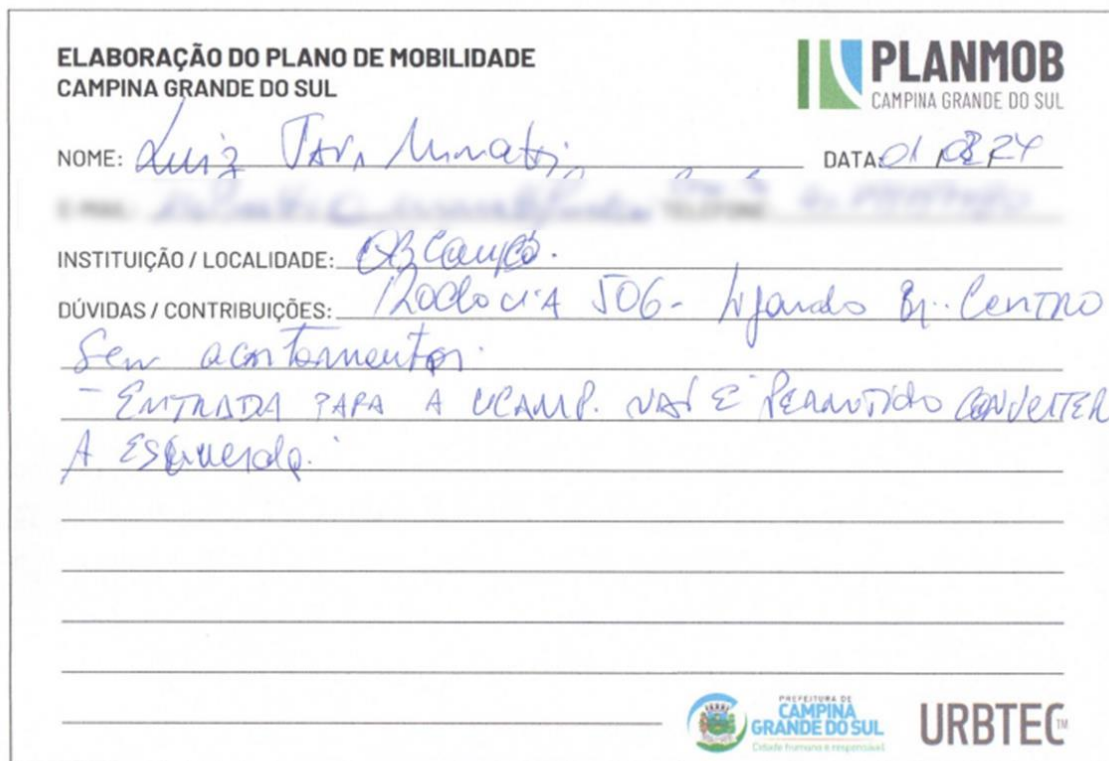 ELABORAÇÃO DO PLANO DE MOBILIDADE
CAMPINA GRANDE DO SUL
PLANMOB
CAMPINA GRANDE DO SUL
NOME: Luiz
DATA: 01/08/24
INSTITUIÇÃO / LOCALIDADE:
DÚVIDAS / CONTRIBUIÇÕES: Rodovia 506 - ligando Br. Centro
Sem acostamento.
- ENTRADA PARA A UCAMP. NAÕ É PERMITIDO CONVERTER
A ESQUERDA.
PREFEITURA DE
CAMPINA
GRANDE DO SUL
Cidade humana e responsável
URBTEC™